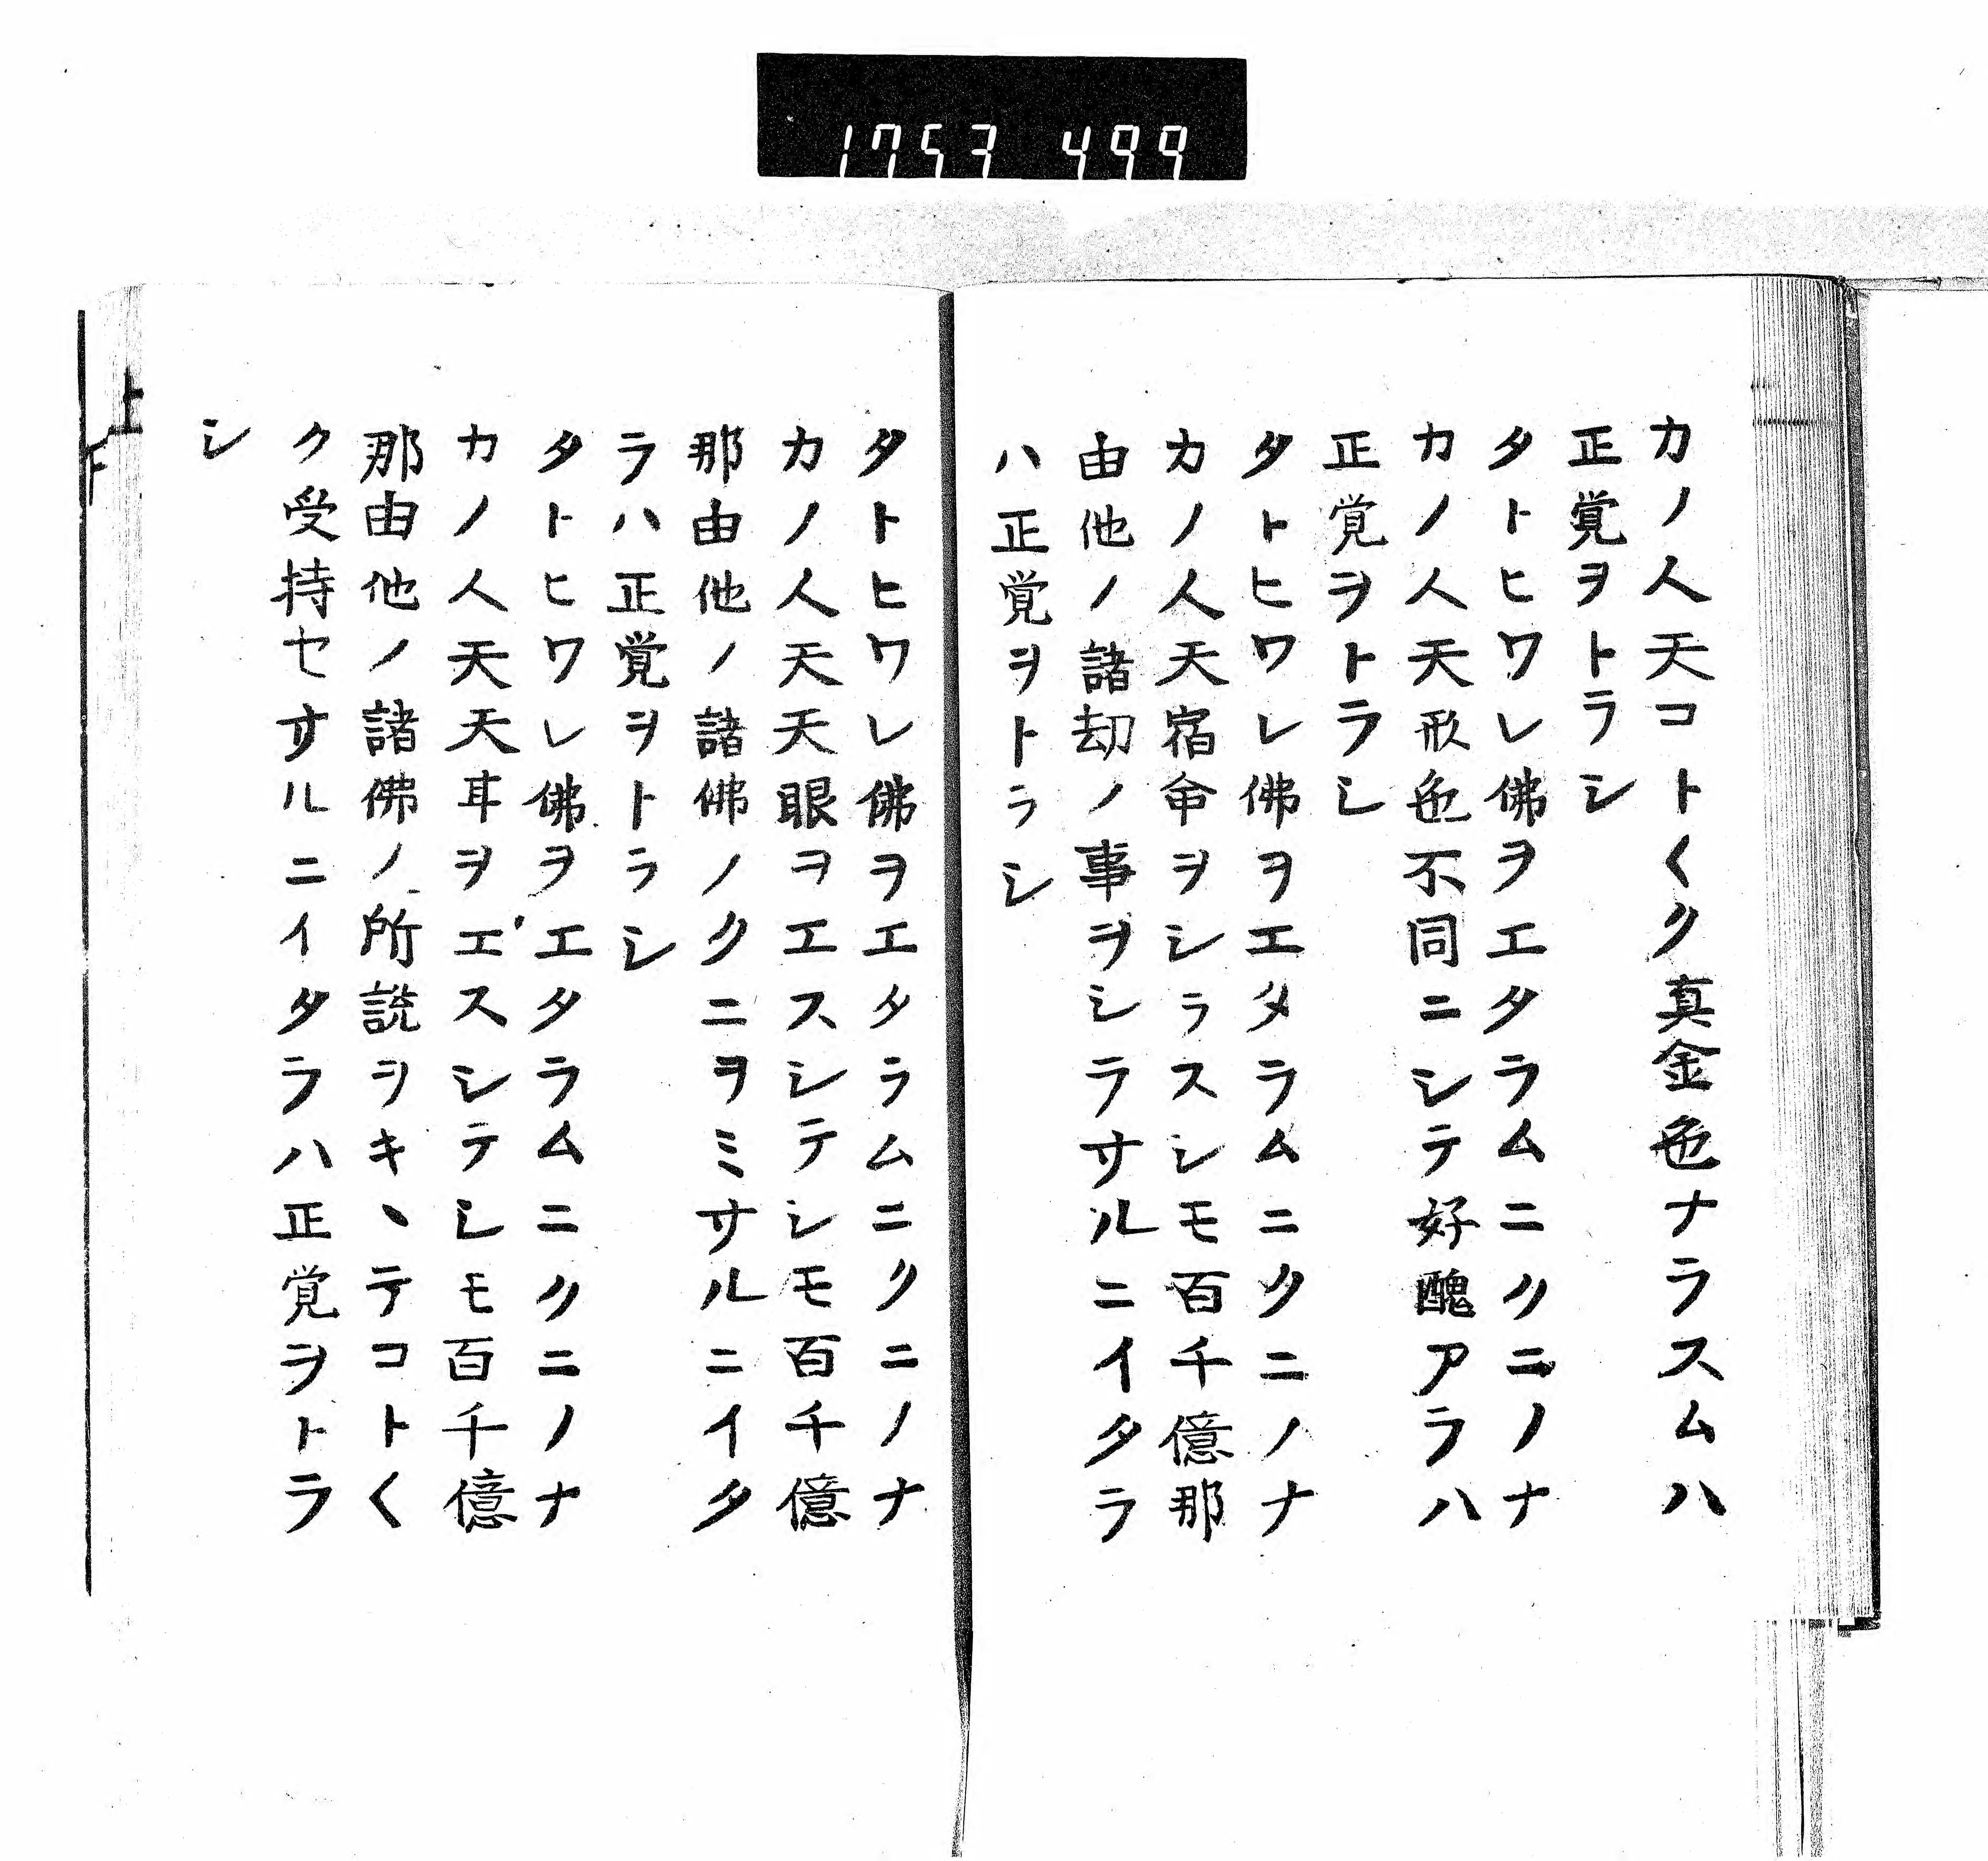 1753 499
カノ人天コトくク真金色ナラスムハ
正覚ヲトラシ
タトヒワレ佛ヲエタラムニクニノナ
カノ人天形色不同ニシテ好醜アラハ
正覚ヲトラシ
タトヒワレ佛ヲエタラムニクニノナ
カノ人天宿命ヲシラスシモ百千億那
由他ノ諸劫ノ事ヲシラサルニイタラ
ハ正覚ヲトラシ
タトヒワレ佛ヲエタラムニクニノナ
カノ人天天眼ヲエスシテシモ百千億
那由他ノ諸佛ノクニヲミサルニイタ
ラハ正覚ヲトラシ
タトヒワレ佛ヲエタラムニクニノナ
カノ人天天耳ヲエスシテシモ百千億
那由他ノ諸佛ノ所説ヲキヽテコトく
ク受持セサルニイタラハ正覚ヲトラ
シ
上